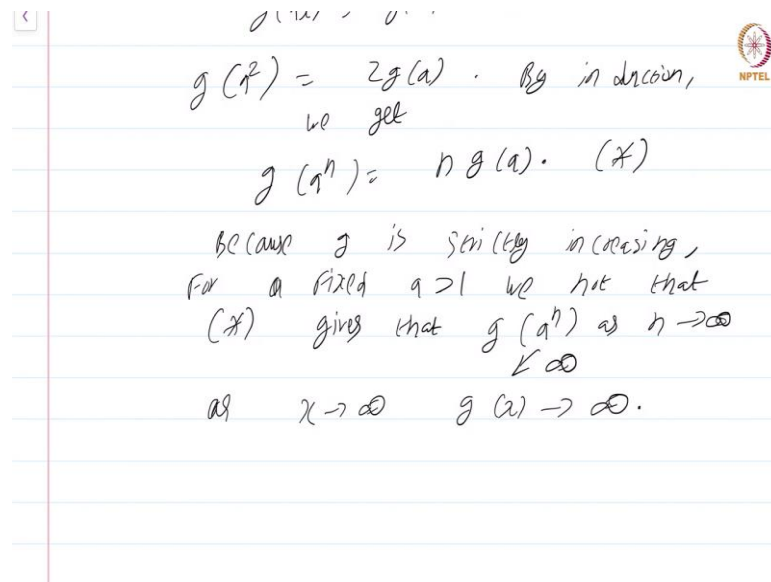 NPTEL
g(a²) = 2g(a). By induction,
we get
g(aⁿ) = n g(a). (*)
Because g is strictly increasing,
For a fixed a>1 we not that
(*) gives that g(aⁿ) as n→∞
↙ ∞
as x→∞ g(x)→∞.